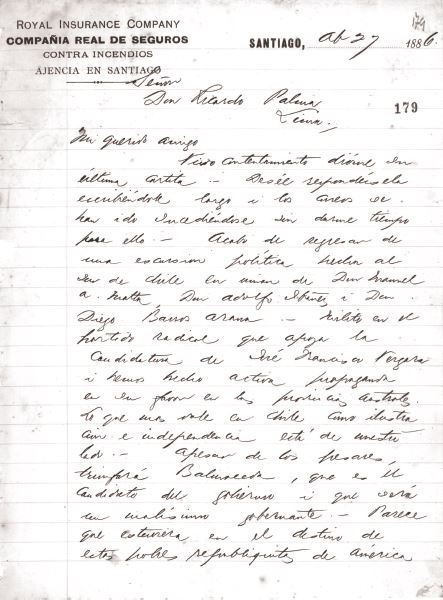 179
ROYAL INSURANCE COMPANY
COMPAÑIA REAL DE SEGUROS
CONTRA INCENDIOS
AJENCIA EN SANTIAGO
SANTIAGO, Ab 27 1886.
Señor
Don Ricardo Palma
Lima,
179
Mi querido amigo
Vivo contentamiento dióme su
última cartita — Deseé respondérsela
escribiéndole largo i los meses se
han ido sucediéndose sin darme tiempo
para ello — Acabo de regresar de
una escursion política hecha al
Sur de Chile en union de Don Manuel
A. Matta, Don Adolfo Ibañez i Don
Diego Barros Arana — Milito en el
partido radical que apoya la
Candidatura de José Francisco Vergara
i hemos hecho activa propaganda
en su favor en las provincias australes.
Lo que mas vale en Chile como ilustra
cion e independencia está de nuestro
lado — Apesar de los pesares,
triunfará Balmaceda, que es el
Candidato del gobierno i que será
un malísimo gobernante — Parece
que estuviera en el destino de
estas pobres republiquitas de America